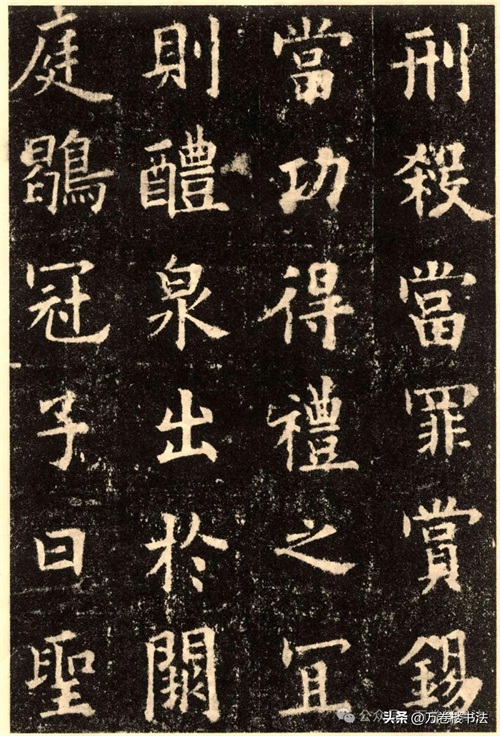 刑殺當罪賞錫
當功得禮之宜
則醴泉出於闕
庭鶡冠子曰聖
头条 @万卷楼书法